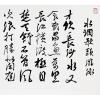 水调歌头游泳
才饮长沙水又
食武昌鱼万里
长江横渡极目
楚天舒不管风
吹浪打胜似闲